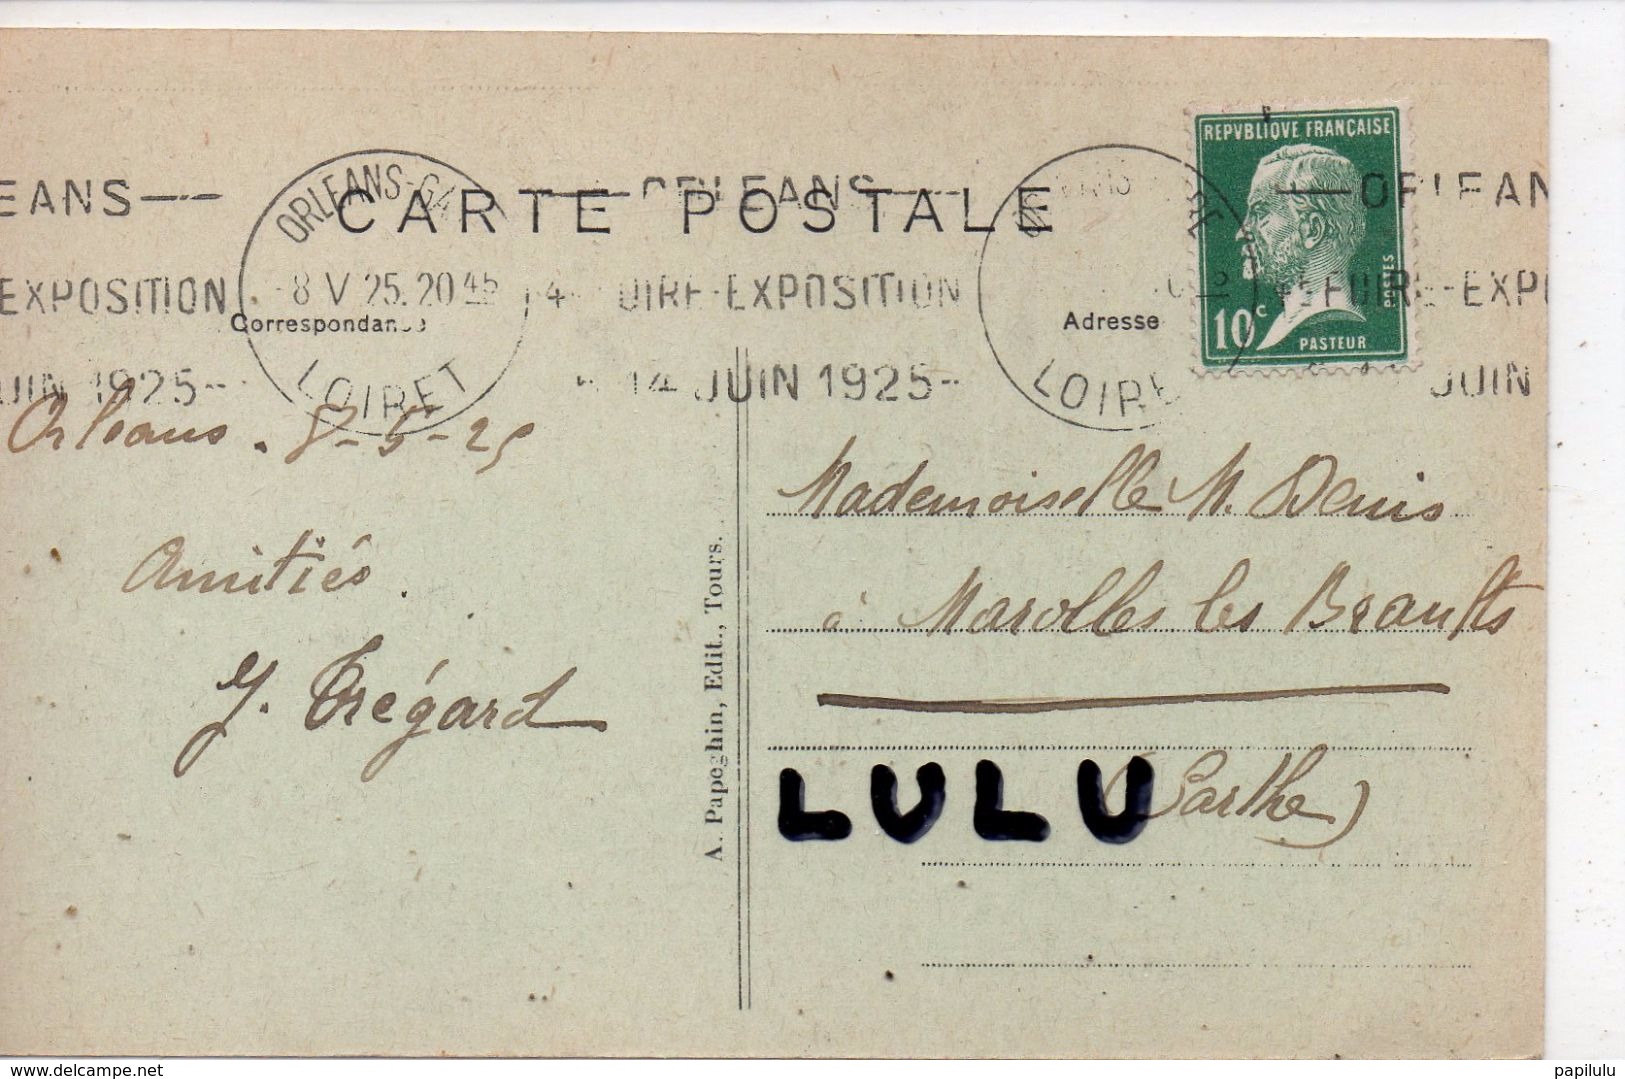 CARTE POSTALE
EANS
ORLEANS
EXPOSITION
EXPOSITION
JUIN 1925
14 JUIN 1925
JUIN
ORLEANS-GARE
8 V 25. 20 45
LOIRET
LOIRET
REPVBLIQVE FRANÇAISE
POSTES
10c
PASTEUR
Correspondance
Adresse
Orléans. 8-5-25
Amitiés.
Y. Trégard
A. Papeghin, Edit., Tours.
Mademoiselle M. Denis
à Marolles les Braults
(Sarthe)
LULU
www.delcampe.net
papilulu